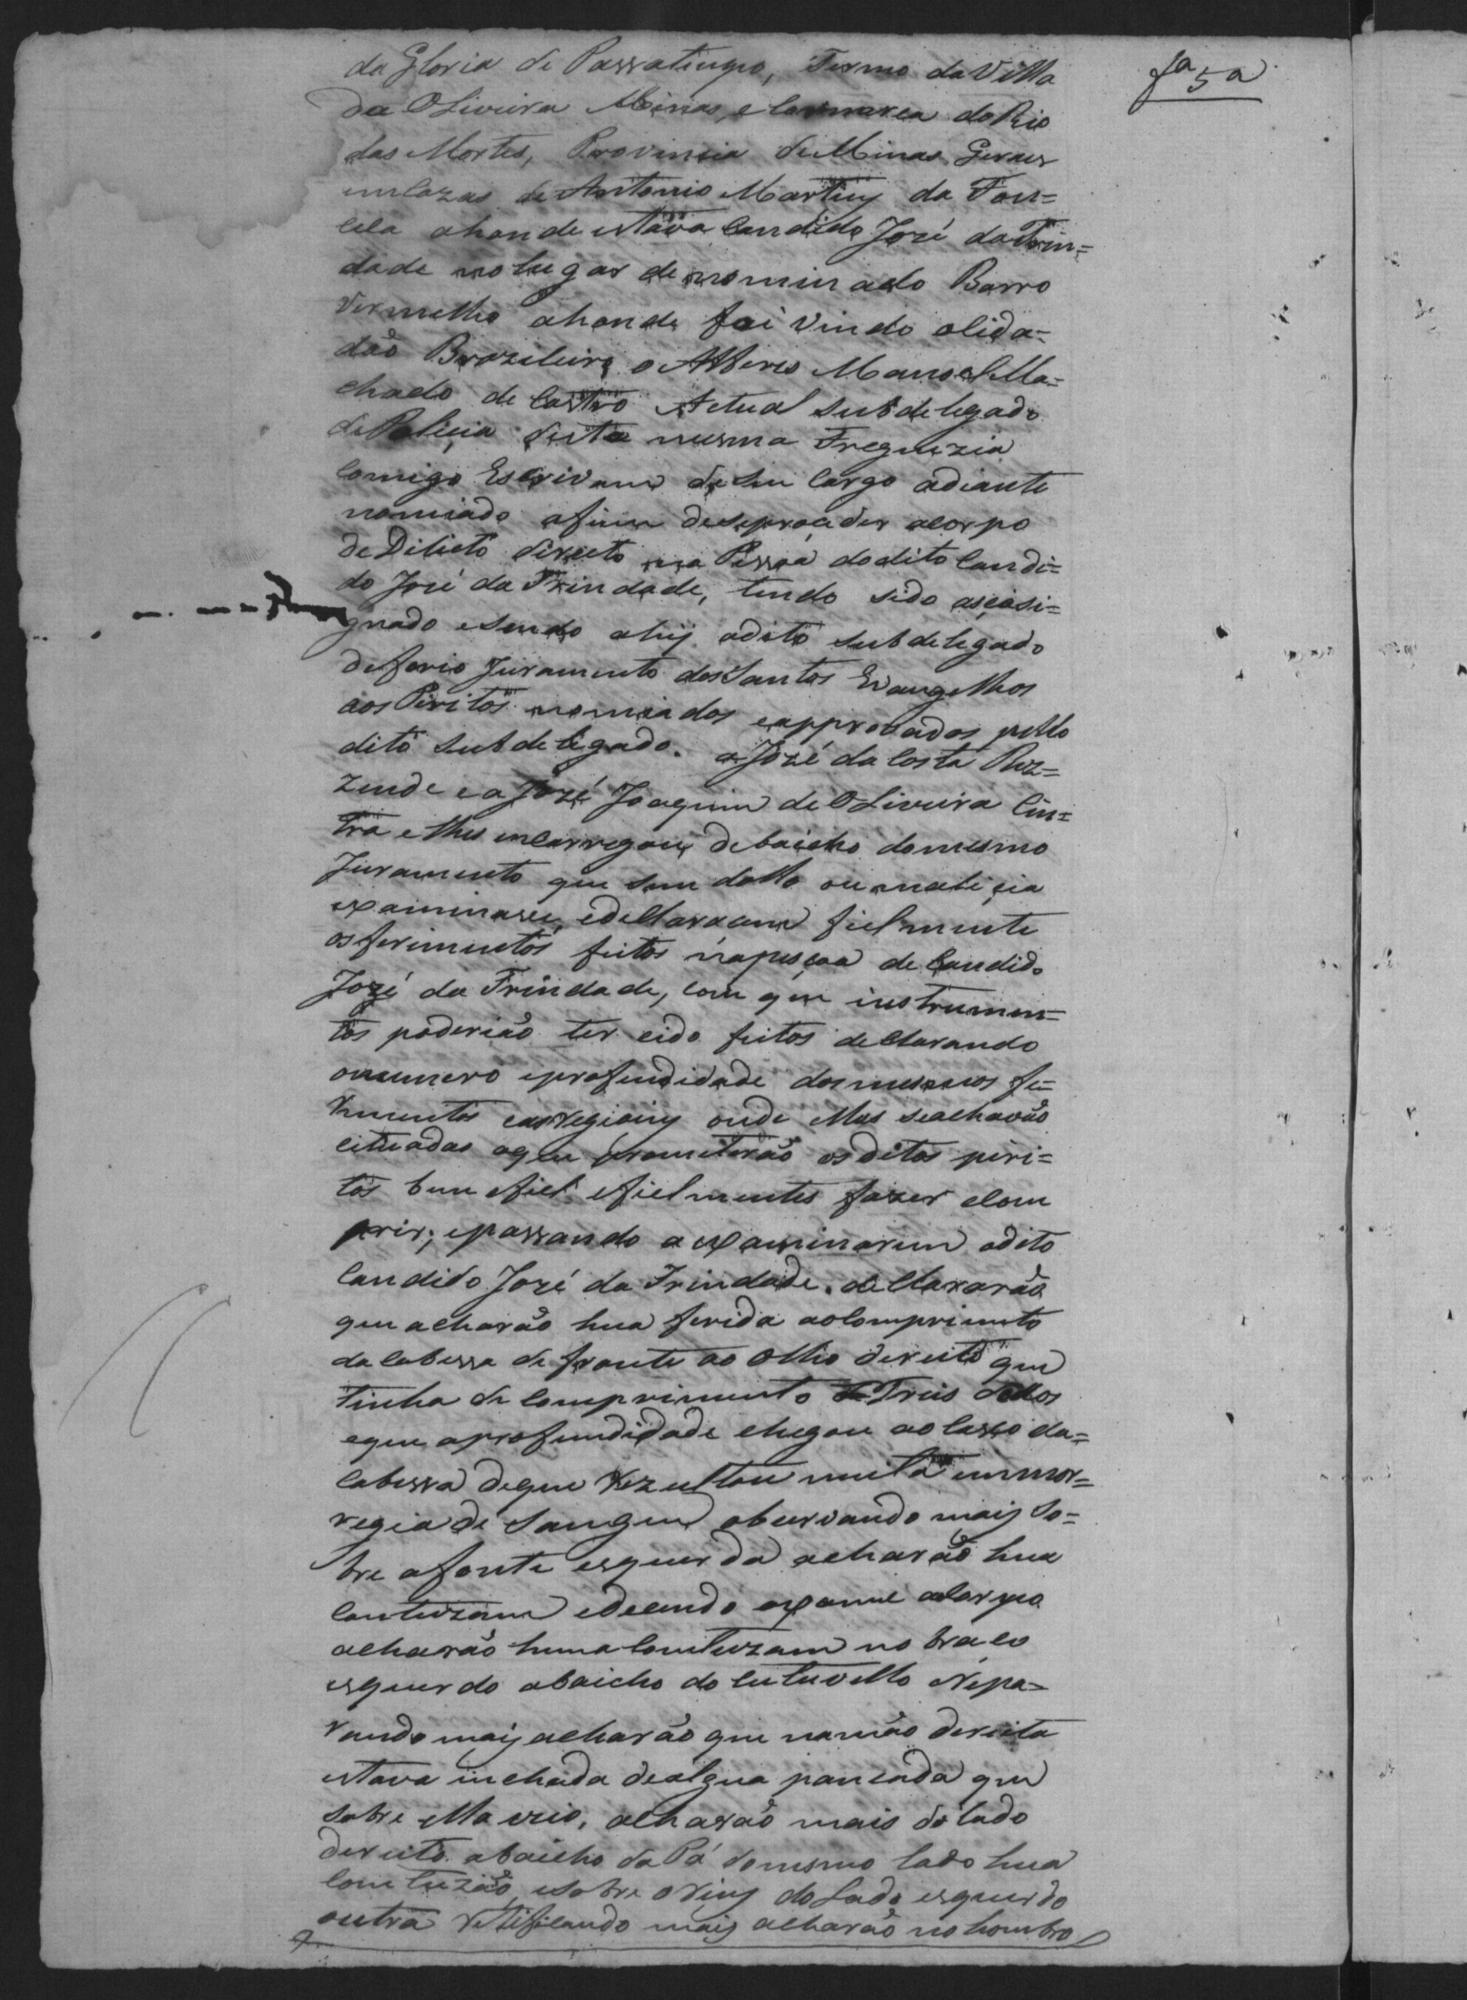 fa 5a
da Gloria de Passatempo, Termo da Villa
da Oliveira Minas, e Commarca do Rio
das Mortes, Provincia de Minas Geraes
emcazas de Antonio Martins da Fon=
ceca ahonde estava Candido José da Trin=
dade no lugar denominado Barro
Vermelho ahonde foi vindo o Cida=
dão Brazileiro o Alferes Manoel Ma=
chado de Castro Actual Subdelegado
de Policia desta mesma Freguezia
Comigo Escrivam de seu Cargo adiante
nomiado afim de seproceder acorpo
de Dilicto directo na Pessoa do dito Candi=
do José da Trindade, tendo sido
gnado esendo ahij odito subdelegado
deferio Juramento dos Santos Evangelhos
aos Piritos nomiados eapprovados pello
dito subdelegado. a José da Costa Rez=
zende e a José Joaquim de Oliveira Cin=
tra e lhes emcarregou debaicho domesmo
Juramento que sem dollo ou malicia
examinasem edeClaracem fielmente
os ferimentos feitos napessoa de Candido
José da Trindade, com que instrumen=
tos poderião ter cido feitos declarando
onumero eprofundidade dos mesmos fe=
rimentos easregioins onde elles seachavão
cituadas oque prometerão os ditos piri=
tos bem efiel efielmentes fazer eCom
prir; epassando a examinarem odito
Candido José da Trindade. declararão
que acharão hua ferida aoComprimento
da Cabessa defronte ao Olho direito que
tinha de Comprimento Treis dedos
eque aprofundidade chegou ao Casco da=
Cabessa deque rezultou muita emmor=
regia de Sangue observando mais So=
bre afonte esquerda acharão hua
Contuzam edecendo exame aCorpo
acharão huma Contuzam no braco
esquerdo abaicho do Cutuvello Repa=
rando mais acharão que namão direita
estava inchada dealgua pancada que
sobre ella veio, acharão mais do lado
direito abaicho da Pá domesmo lado hua
Contuzão, esobre oRins do Lado esquerdo
outra retificando mais acharão no hombro